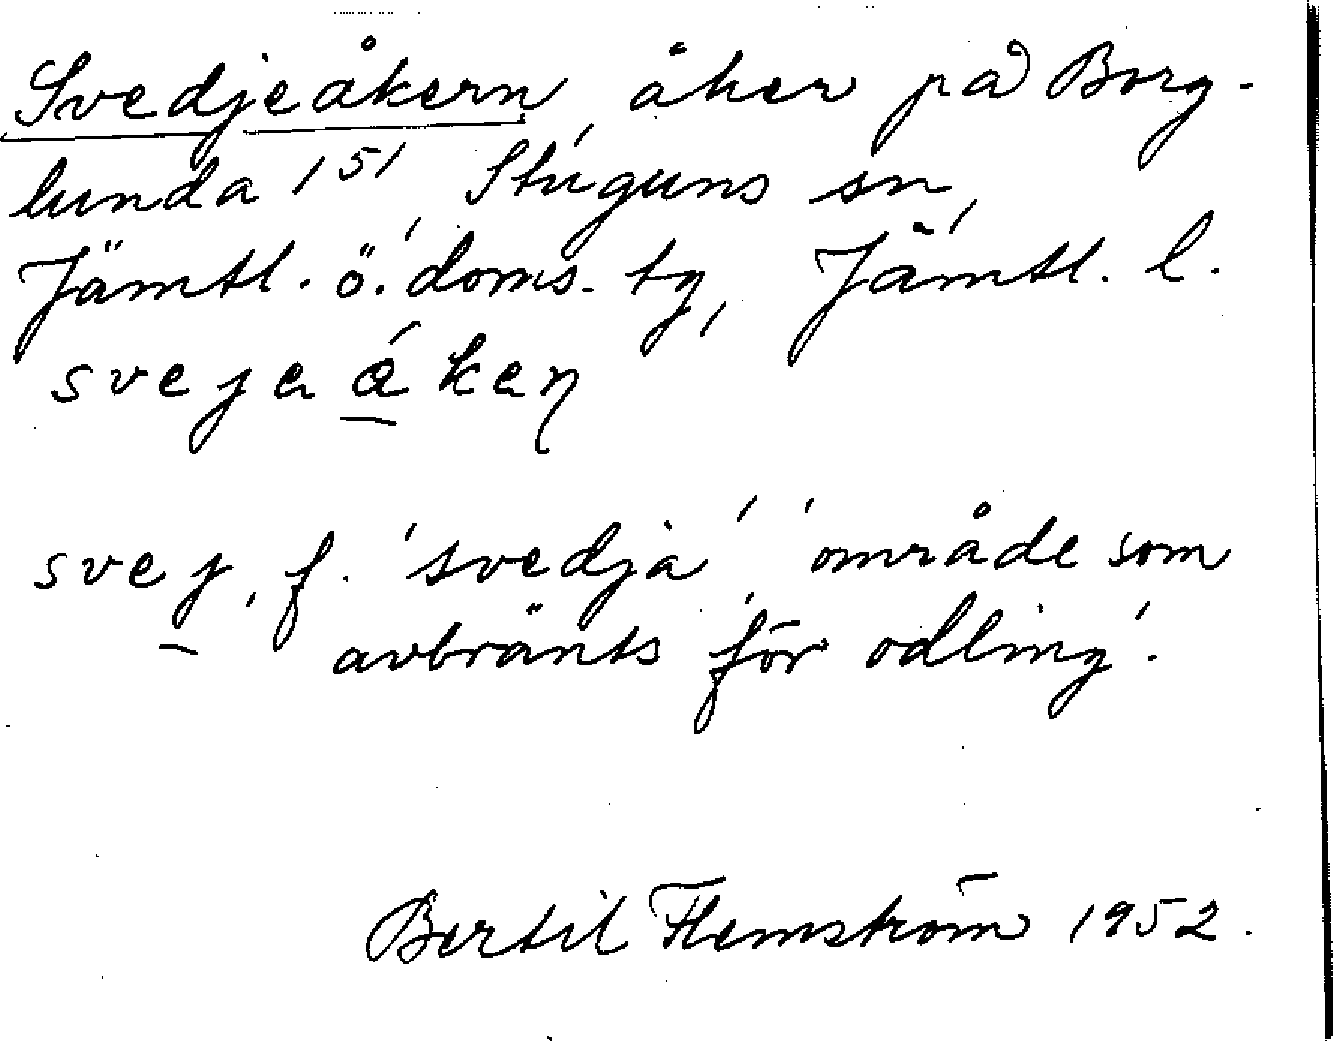 Svedjeåkern, åker på Borg-
lunda 151, Stuguns sn,
Jämtl. ö. doms. tg, Jämtl. l.
svejeåkeɳ
svej, f. 'svedja', 'område som
avbränts för odling'.
Bertil Flemström 1952.